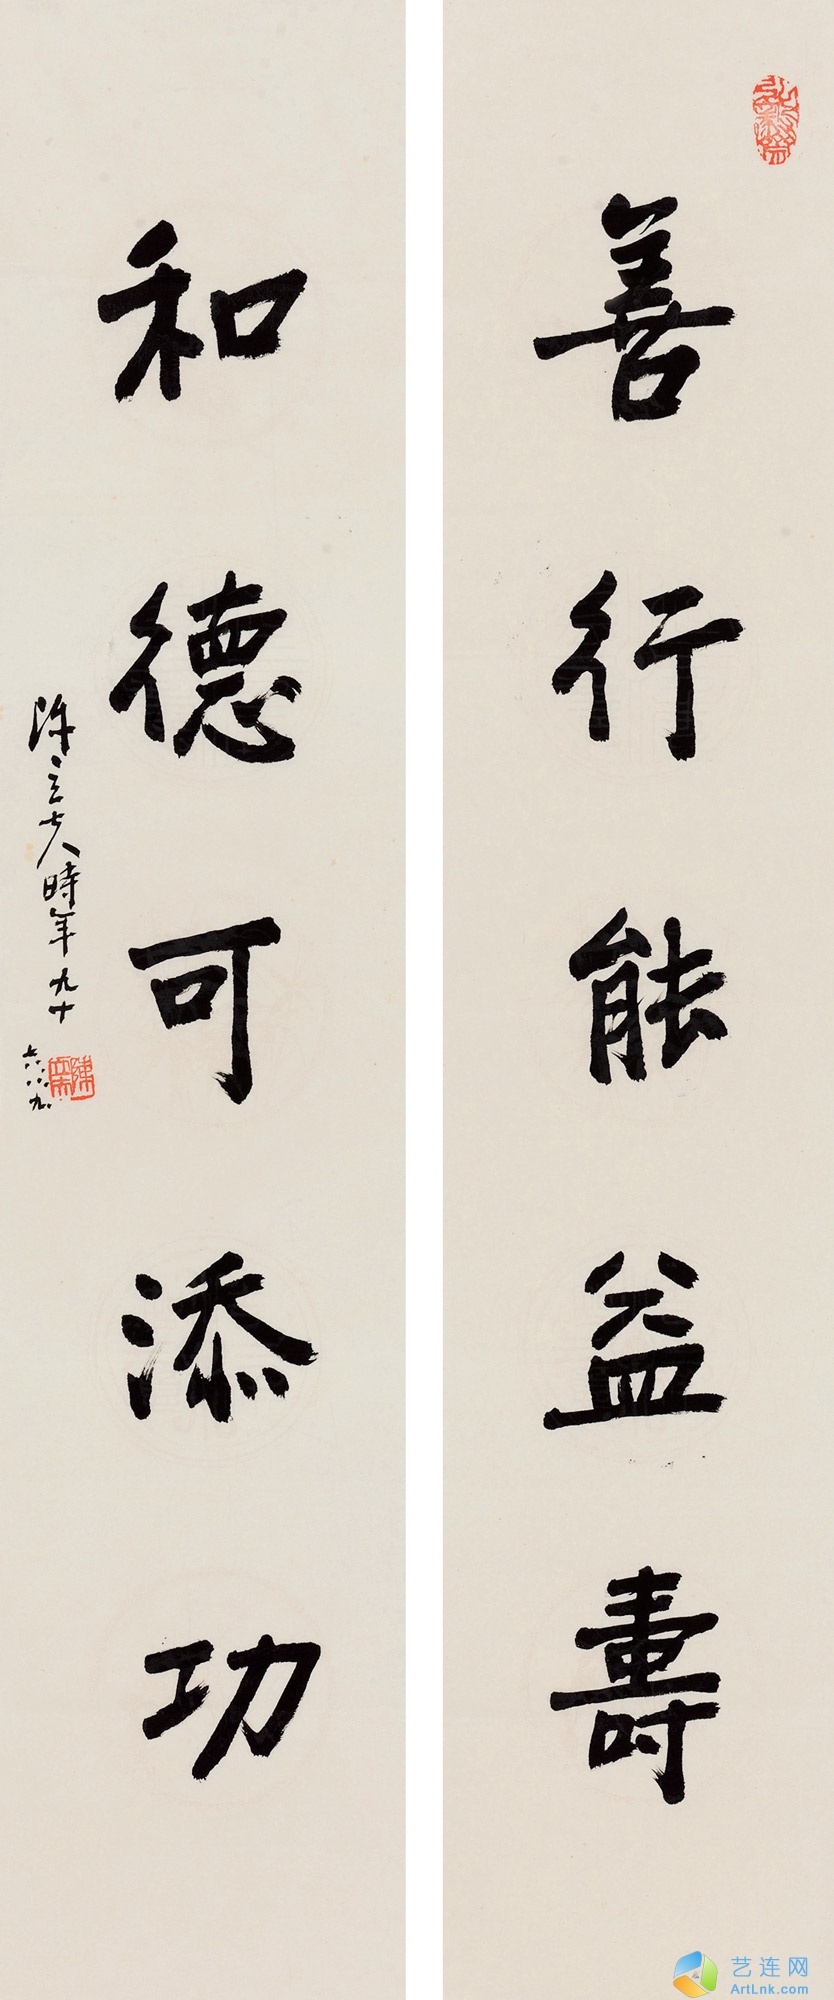 善行能益壽
和德可添功
陳立夫時年九十
六.八.九.
陳立夫
艺连网
ArtLnk.com